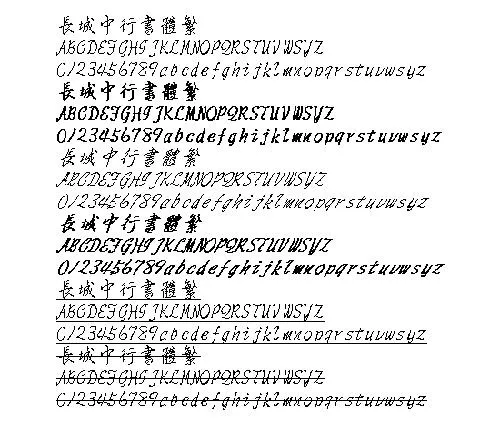 長城中行書體繁
ABCDEFGHIJKLMNOPQRSTUVWXYZ
0123456789abcdefghijklmnopqrstuvwxyz
長城中行書體繁
ABCDEFGHIJKLMNOPQRSTUVWXYZ
0123456789abcdefghijklmnopqrstuvwxyz
長城中行書體繁
ABCDEFGHIJKLMNOPQRSTUVWXYZ
0123456789abcdefghijklmnopqrstuvwxyz
長城中行書體繁
ABCDEFGHIJKLMNOPQRSTUVWXYZ
0123456789abcdefghijklmnopqrstuvwxyz
長城中行書體繁
ABCDEFGHIJKLMNOPQRSTUVWXYZ
0123456789abcdefghijklmnopqrstuvwxyz
長城中行書體繁
ABCDEFGHIJKLMNOPQRSTUVWXYZ
0123456789abcdefghijklmnopqrstuvwxyz